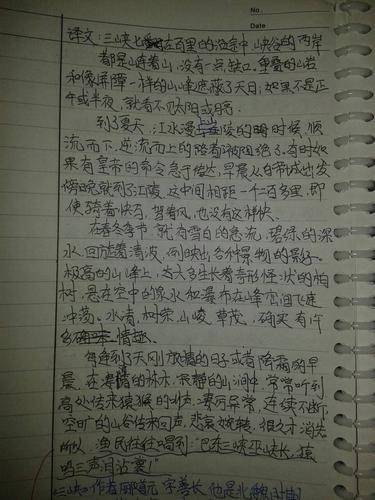 No.
Date
译文：三峡七百里的沿途中峡谷的两岸
都是山连着山，没有一点缺口。重叠的山岩
和像屏障一样的山峰遮蔽了天日，如果不是正
午或半夜，就看不见太阳或月亮。
到了夏天，江水漫上山陵的时候，顺
流而下，逆流而上的路都被阻绝了。有时如
果有皇帝的命令急于传达，早晨从白帝城出发
傍晚就到了江陵，这中间相距一千二百多里，即
使骑着快马，驾着风，也没有这样快。
在春冬季节，就有雪白的急流，碧绿的深
水，回旋着清波，倒映出各种景物的影子。
极高的山峰上，大多生长着奇形怪状的柏
树，悬在空中的泉水和瀑布在山峰之间飞速
冲荡。水清，树荣，山峻，草茂，确实有许
多情趣。
每逢到了天刚放晴的日子或者降霜的早
晨，在凄清的林木，寂静的山涧中，常常听到
高处传来猿猴的叫声，凄厉异常，连续不断，
空旷的山谷传来回声，悲哀婉转，很久才消失
所以，渔民往往唱到：“巴东三峡巫峡长，猿
鸣三声泪沾裳！”
三峡：作者郦道元，字善长，他是北魏